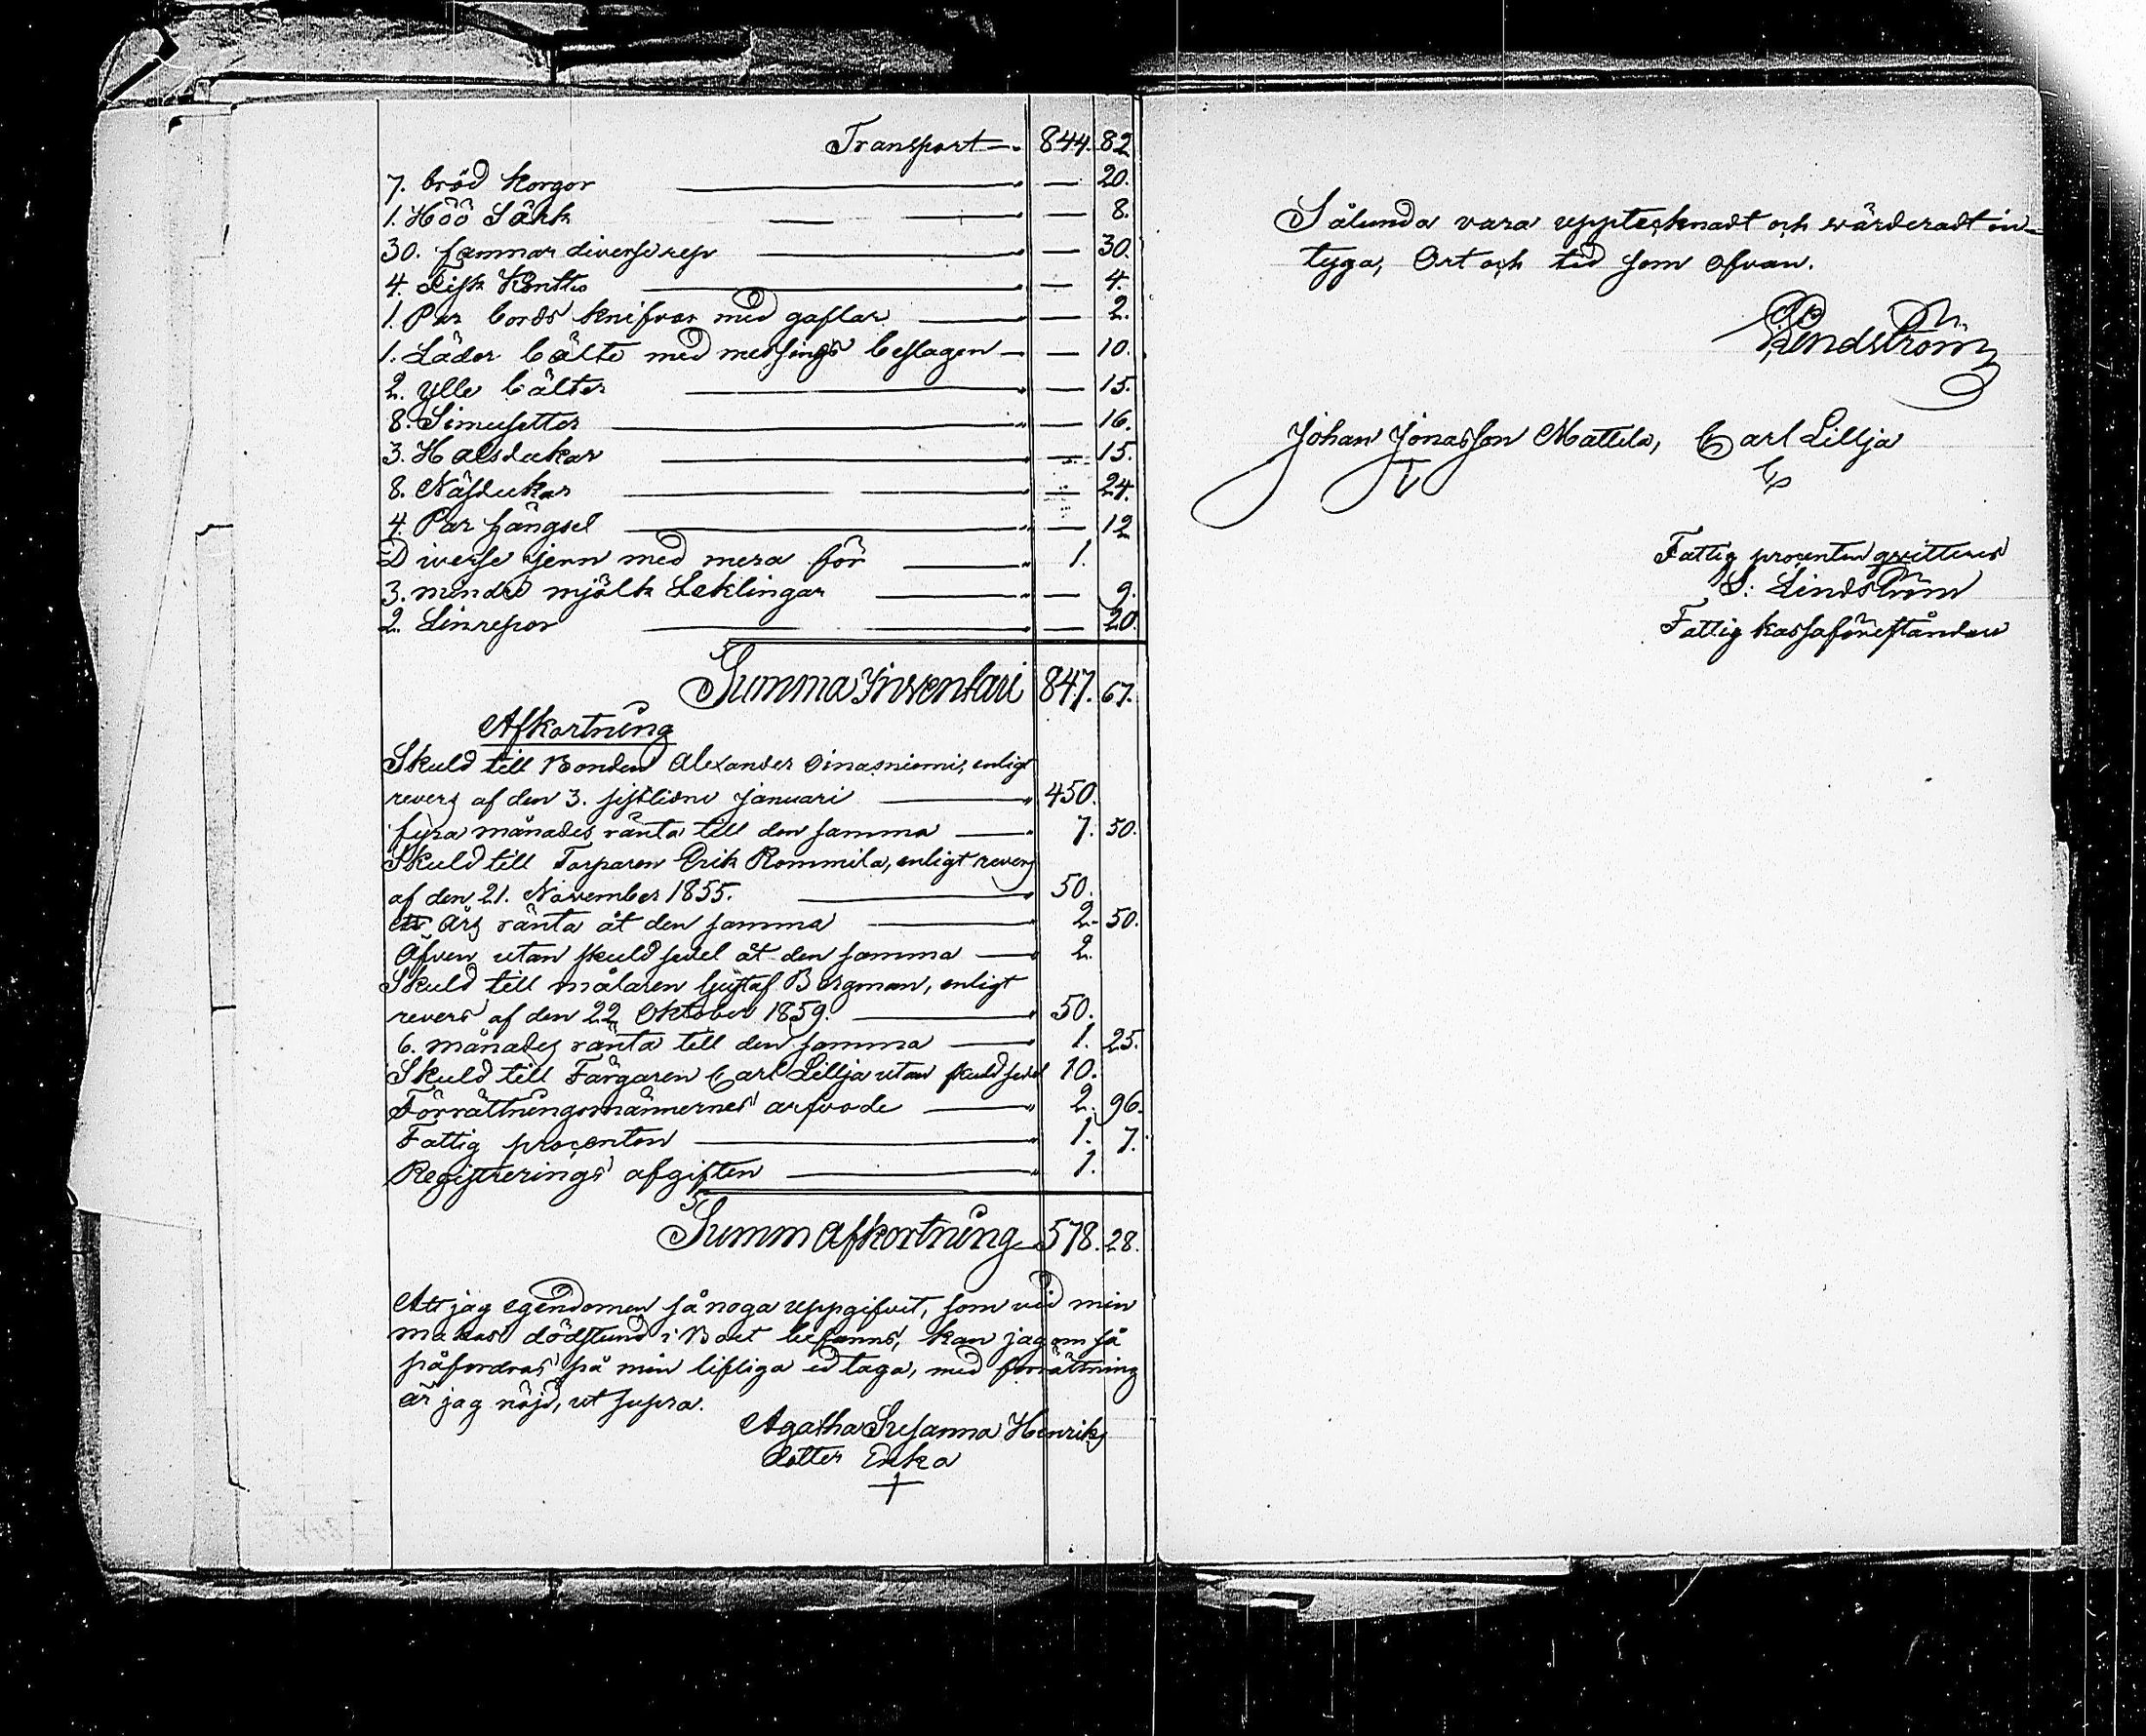 Transport — 844. 82
7. bröd korgor — 20.
1. Höö Säkk — 8.
30. famnar diverse rep — 30.
4. Fisk Konttio — 4.
1. Par bords knifvar med gaflar — 2.
1. Läder bälte med messings beslagen — 10.
2. ylle bälter — 15.
8. Simusetter — 16.
3. Halsdukar — 15.
8. Näsdukar — 24.
4. Par hängsel — 12
Diverse jern med mera för — 1.
3. mindre mjölk Leklingar — 9.
2. Linrepor — 20.
Summa Inventari 847. 67.
Afkortning
Skuld till Bonden Alexander Oinasniemi, enligt
revers af den 3. sistlidne Januari — 450.
fyra månades ränta till den samma — 7. 50.
Skuld till Torparen Erik Rommila, enligt revers
af den 21. November 1855. — 50.
Års ränta åt den samma — 2. 50.
Äfven utan skuldsedel åt den samma — 2.
Skuld till målaren Gustaf Bergman, enligt
revers af den 22 Oktober 1859. — 50.
6. månades ränta till den samma — 1. 25.
Skuld till Färgaren Carl Lillja utan skuldsedel 10.
Förrättningsmännernes arfvode — 2. 96.
Fattig procenten — 1. 7.
Registrerings afgiften — 1.
Summ Afkortning 578. 28.
Att jag egendomen så noga uppgifvit, som vid min
makas dödstund i Boet befanns, kan jag om så
påfordras på min lifliga ed taga, med förrättning
är jag nöjd, ut supra.
Agatha Susanna Henriks
dotter Enka
Sålunda vara upptecknadt och wärderadt in-
tyga, Ort och tid som ofvan.
Lindström
Johan Jonasson Mattila, Carl Lillja
Fattig procenten qvitteras
S: Lindström
Fattig kassaföreståndare